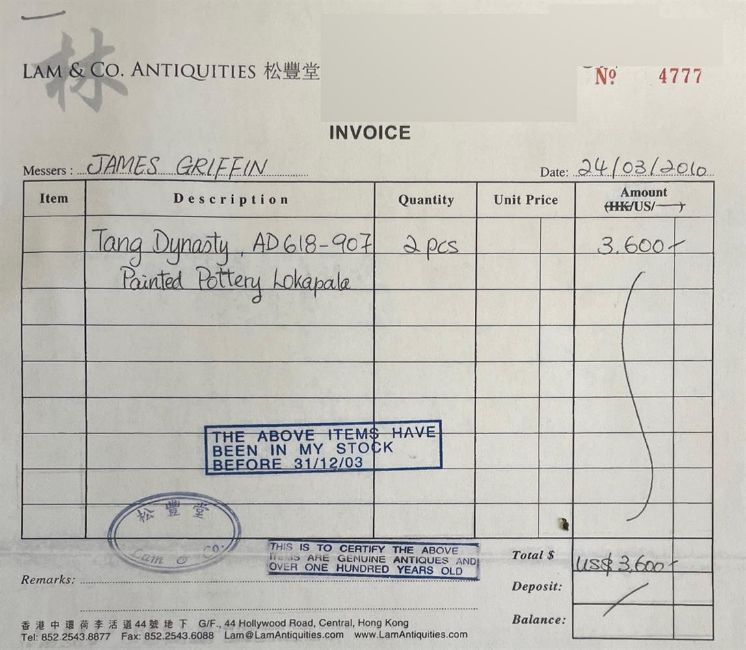 林
LAM & CO. ANTIQUITIES 松豐堂
№ 4777
INVOICE
Messers: JAMES GRIFFIN
Date: 24/03/2010
Item Description Quantity Unit Price Amount (HK/US/ )
Tang Dynasty, AD 618-907 2 pcs 3,600-
Painted Pottery Lokapala
THE ABOVE ITEMS HAVE
BEEN IN MY STOCK
BEFORE 31/12/03
松豐堂
Lam & Co.
THIS IS TO CERTIFY THE ABOVE
ITEMS ARE GENUINE ANTIQUES AND
OVER ONE HUNDRED YEARS OLD
Total $ US$ 3,600-
Remarks:
Deposit:
Balance:
香港中環荷李活道44號地下 G/F., 44 Hollywood Road, Central, Hong Kong
Tel: 852.2543.8877 Fax: 852.2543.6088 Lam@LamAntiquities.com www.LamAntiquities.com